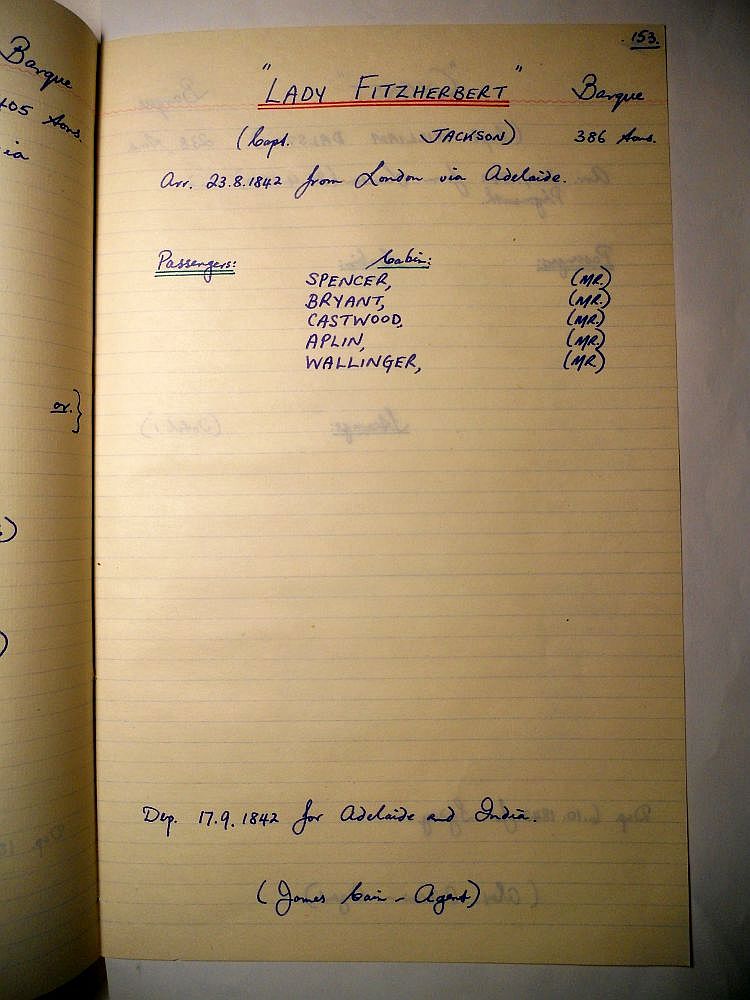 Barque
405 tons.
ia
or.}
153.
"LADY FITZHERBERT" Barque
(Capt. JACKSON) 386 tons.
Arr. 23.8.1842 from London via Adelaide.
Passengers: Cabin:
SPENCER, (MR.)
BRYANT, (MR.)
CASTWOOD, (MR.)
APLIN, (MR.)
WALLINGER, (MR.)
Dep. 17.9.1842 for Adelaide and India.
(James Cain - Agent)